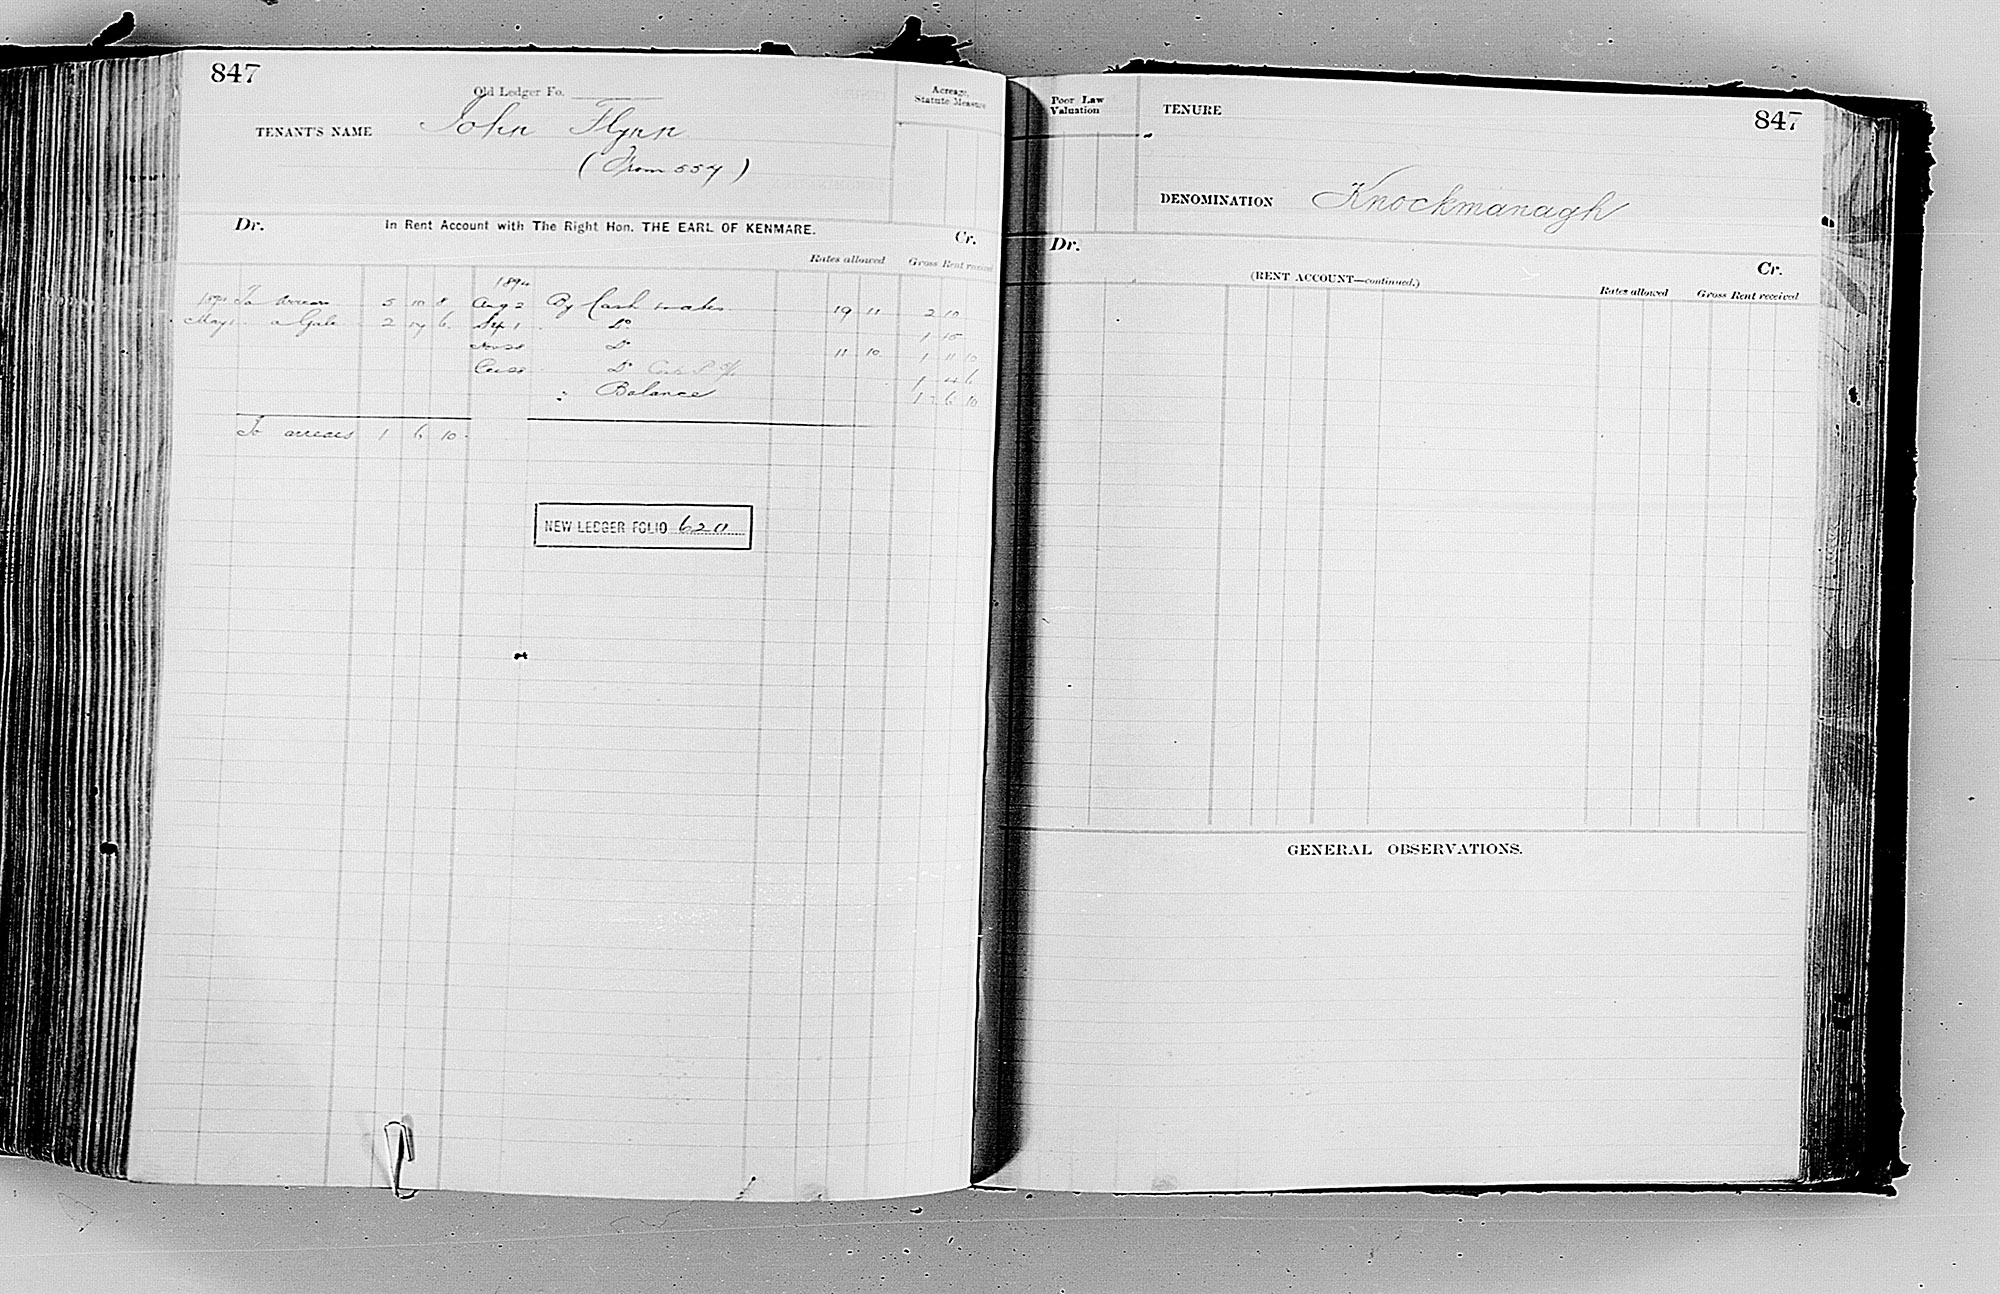 847
Old Ledger Fo.
TENANT'S NAME John Flynn
(From 557)
Acreage, Statute Measure
Dr. In Rent Account with The Right Hon. THE EARL OF KENMARE. Cr.
Rates allowed Gross Rent received
1894
To arrears 5 10 8 Aug 2 By Cash 19 11 2 10
May 1 a Gale 2 17 6 Sep 1 Do 1 15
Do 11 10 1 11 10
Do 1 4 6
" Balance 1 6 10
To arrears 1 6 10
NEW LEDGER FOLIO 620
Poor Law Valuation
TENURE
847
DENOMINATION Knockmanagh
Dr. (RENT ACCOUNT—continued.) Cr.
Rates allowed Gross Rent received
GENERAL OBSERVATIONS.